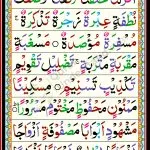 نُطْفَةٍ عِبْرَةً نَخِرَةً تَذْكِرَةً
مُسْفِرَةٌ مُؤْصَدَةٌ مَسْغَبَةٍ
مَقْرَبَةٍ مَتْرَبَةٍ تَضْلِيْلٍ تَقْوِيْمٍ
تَكْذِيْبٍ تَسْنِيْمٍ مِسْكِيْنًا
مَمْنُوْنٍ مَحْفُوْظٍ مَخْتُوْمٍ مَسْرُوْرًا
مَشْهُوْدٍ اَبْوَابًا مَصْفُوْفَةٌ اَزْوَاجًا